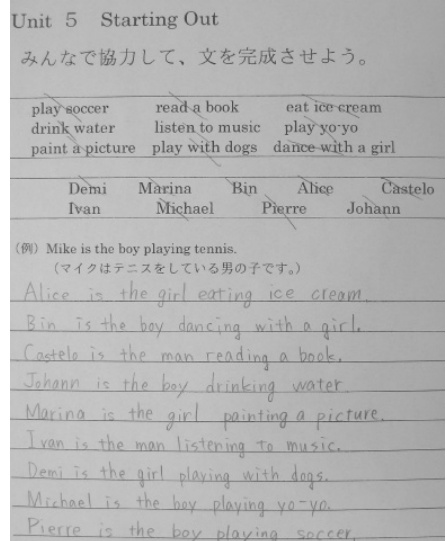 Unit 5 Starting Out
みんなで協力して、文を完成させよう。
play soccer read a book eat ice cream
drink water listen to music play yo-yo
paint a picture play with dogs dance with a girl
Demi Marina Bin Alice Castelo
Ivan Michael Pierre Johann
(例) Mike is the boy playing tennis.
(マイクはテニスをしている男の子です。)
Alice is the girl eating ice cream.
Bin is the boy dancing with a girl.
Castelo is the man reading a book.
Johann is the boy drinking water.
Marina is the girl painting a picture.
Ivan is the man listening to music.
Demi is the girl playing with dogs.
Michael is the boy playing yo-yo.
Pierre is the boy playing soccer.